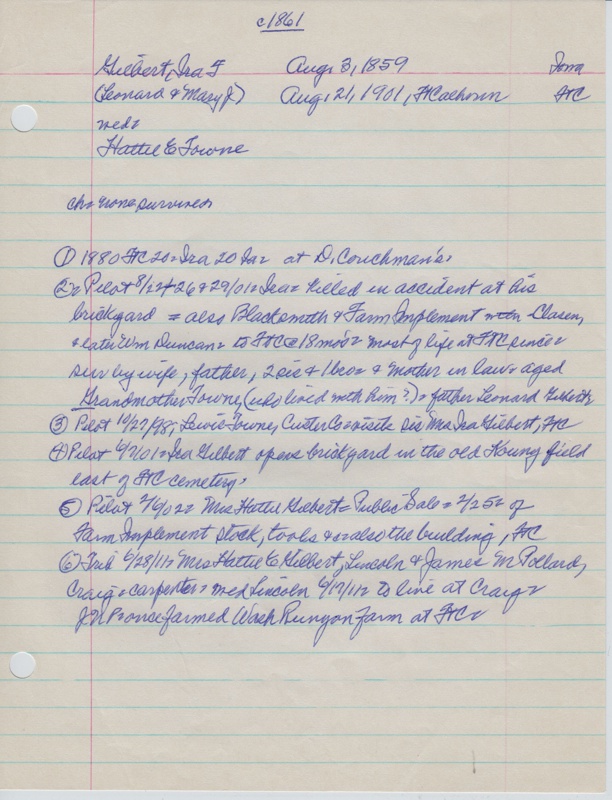 c1861
Gilbert, Ira F Aug. 3, 1859 Iowa
(Leonard & Mary J.) Aug. 21, 1901, FtCalhoun FtC
med=
Hattie E Towne
ch= none survived
① 1880 FtC 20= Ira 20 Ia= at D. Couchman's.
②= Pilot 8/22 & 26 & 29/01= Ira= killed in accident at his
brickyard = also Blacksmith & Farm Implement with Clasen,
& later Wm Duncan= to FtC@18 mos= most of life at FtC since=
sur by wife, father, 2 sis & 1 bro= & mother in law= aged
Grandmother Towne, (who lived with him?)= father Leonard Gilbert,
③ Pilot 10/27/98, Lewis Towne, Custer Co= visits sis Mrs Ira Gilbert, FtC
④ Pilot 4/2/01= Ira Gilbert opens brickyard in the old Young field
east of FtC cemetery.
⑤ Pilot 2/6/02= Mrs Hattie Gilbert= Public Sale= 2/25= of
Farm Implement stock, tools &= also the building, FtC
⑥ Trib 4/28/11= Mrs Hattie E Gilbert, Lincoln & James M Pollard,
Craig= carpenter= med Lincoln 4/17/11= to live at Craig=
J M P= once farmed Wash Runyon farm at FtC=